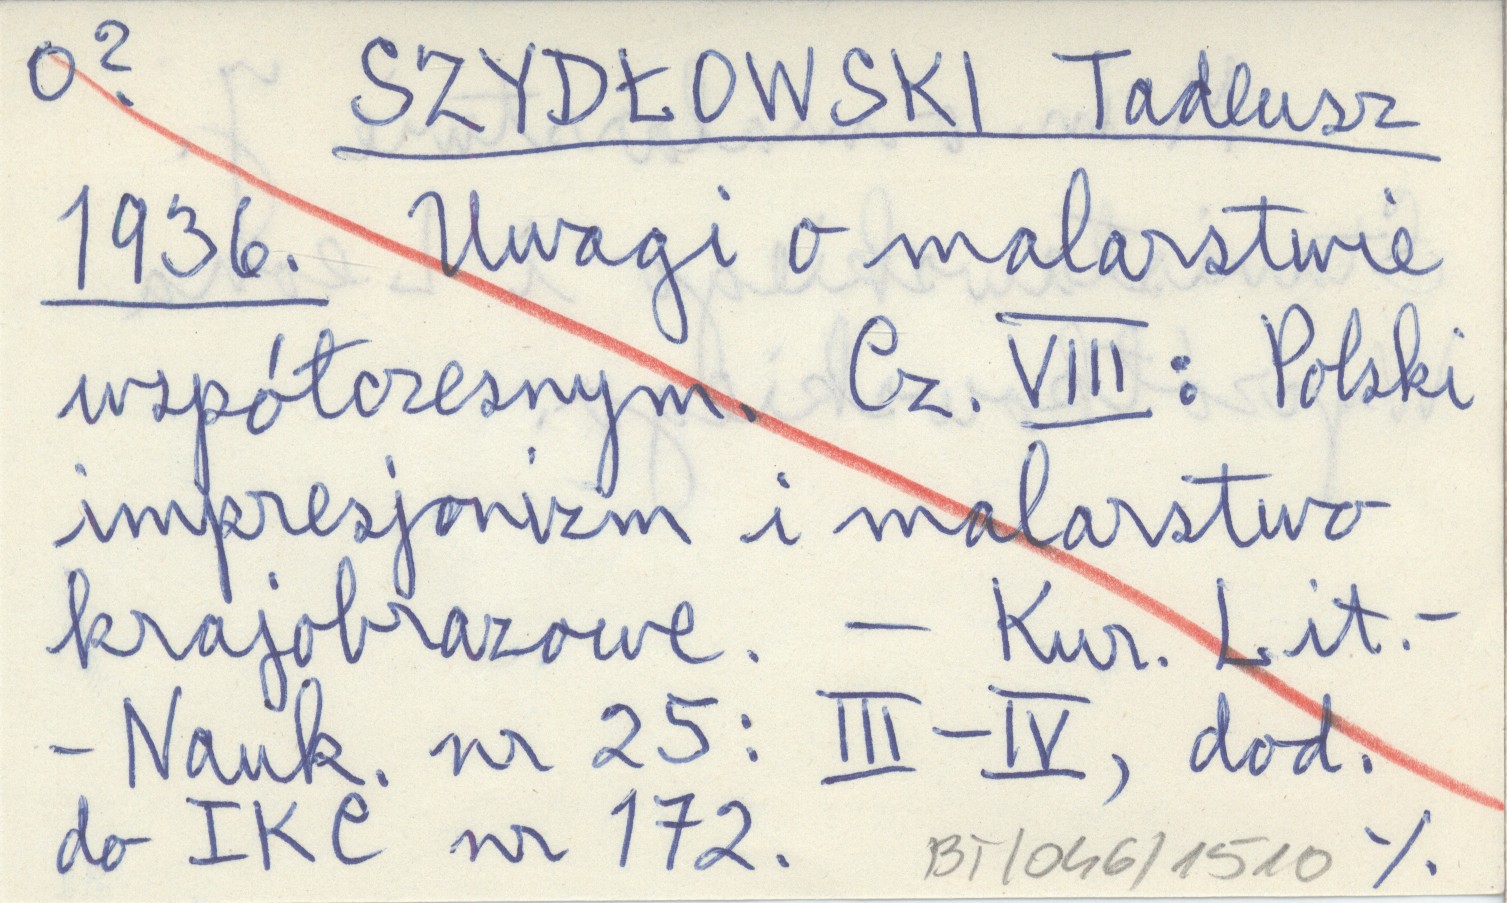 0? SZYDŁOWSKI Tadeusz
1936. Uwagi o malarstwie
współczesnym. Cz. VIII: Polski
impresjonizm i malarstwo
krajobrazowe. — Kur. Lit.-
-Nauk. nr 25: III-IV, dod.
do IKC nr 172.
BT/046/1510 ·/.